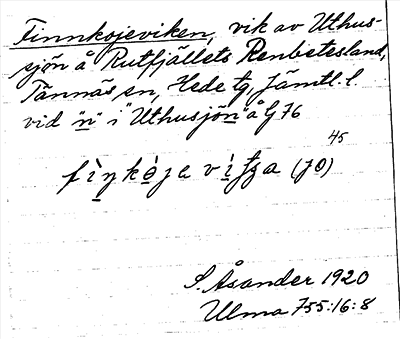 Finnkojeviken, vik av Uthus-
sjön å Rutfjällets Renbetesland,
Tännäs sn, Hede tg, Jämtl. l.
vid "n" i "Uthusjön" å G 76
45
S. Åsander 1920
Ulma 755:16:8